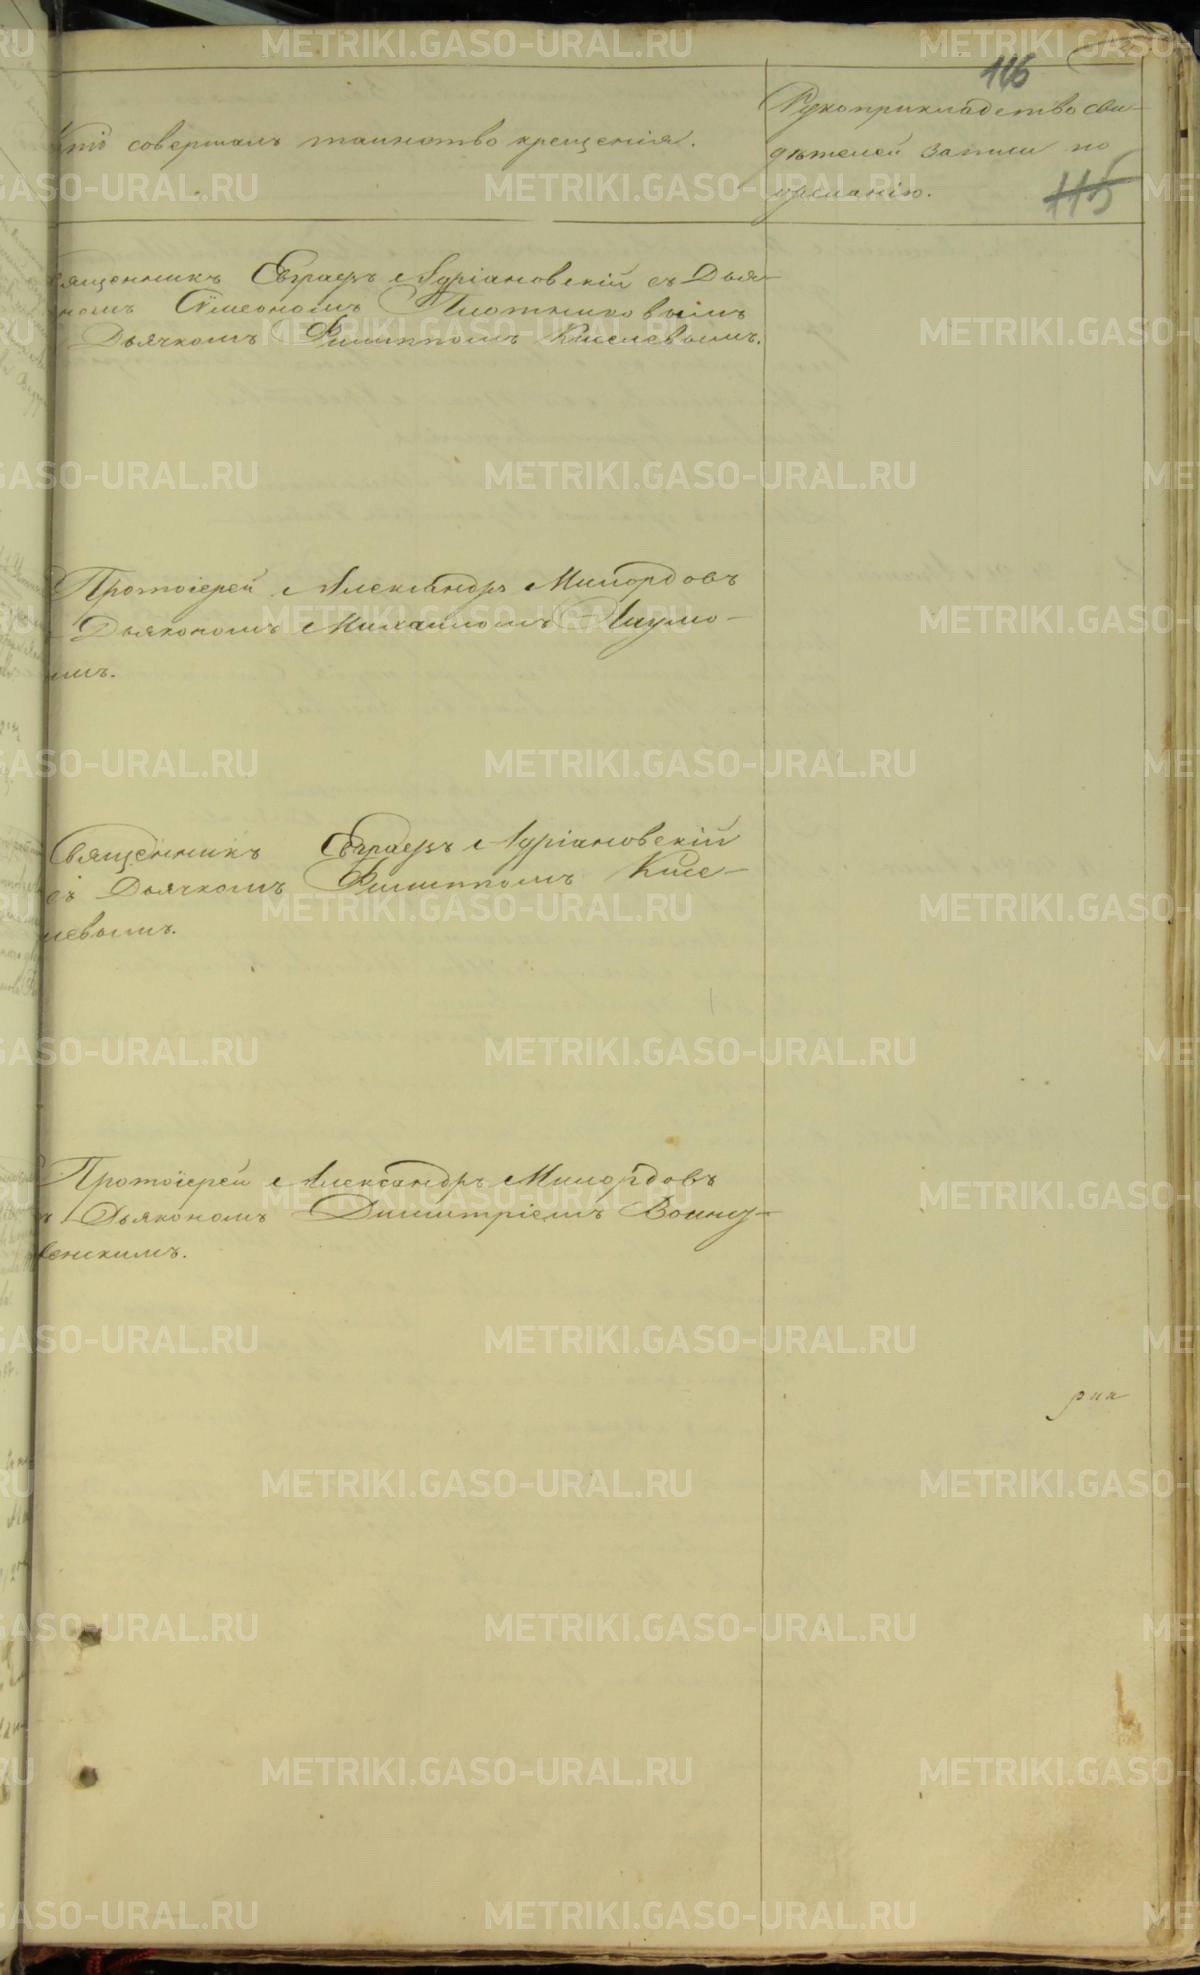 116
Кто совершалъ таинство крещенія.
Рукоприкладство сви-
дѣтелей записи по
желанію.
115
Священникъ Евграфъ Адріановскій съ Дья-
кономъ Сѵмеономъ Плотниковымъ
Дьячкомъ Филиппомъ Киселевымъ.
Протоіерей Александръ Милордовъ
Дьякономъ Михаиломъ
Священникъ Евграфъ Адріановскій
съ Дьячкомъ Филиппомъ Кисе-
левымъ.
Протоіерей Александръ Милордовъ
Дьякономъ Димитріемъ
METRIKI.GASO-URAL.RU